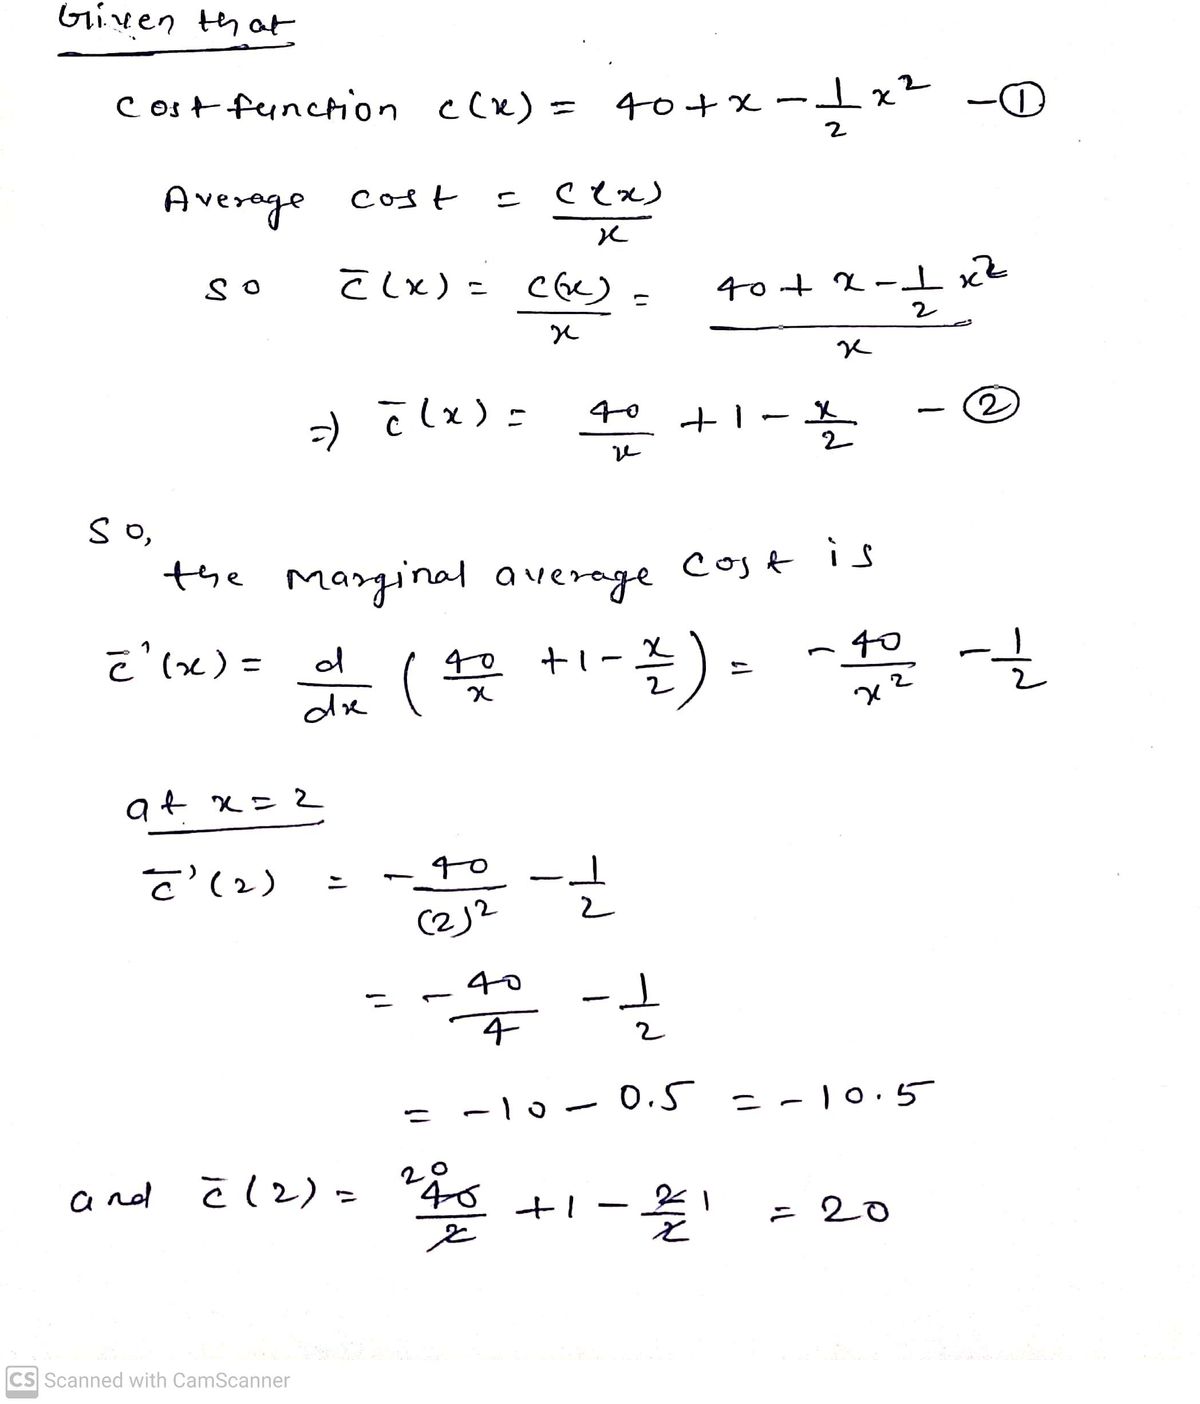 Given that
Cost function c(x) = 40 + x - 1/2 x² - ①
Average cost = c(x)/x
so c̄(x) = c(x)/x = (40 + x - 1/2 x²)/x
⇒ c̄(x) = 40/x + 1 - x/2 - ②
So,
the marginal average cost is
c̄'(x) = d/dx (40/x + 1 - x/2) = -40/x² - 1/2
at x = 2
c̄'(2) = -40/(2)² - 1/2
= -40/4 - 1/2
= -10 - 0.5 = -10.5
and c̄(2) = 20 40/2 + 1 - 2/2 1 = 20
CS Scanned with CamScanner